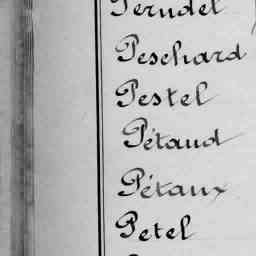 Peschard
Pestel
Pétaud
Pétaux
Petel